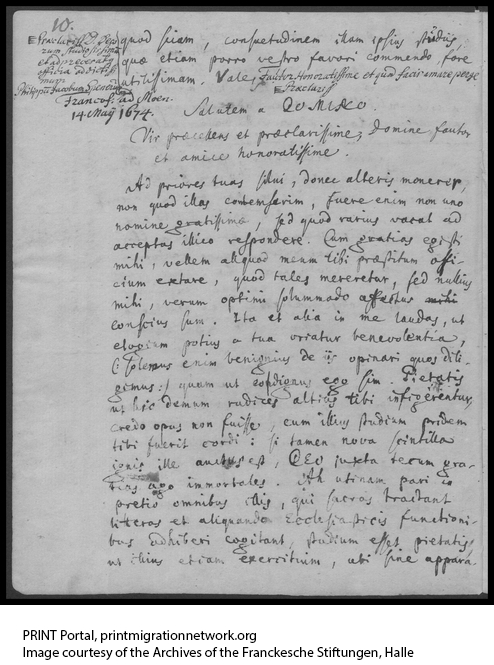 10.
quod sciam, consuetudinem illam ipsius studiis,
quae etiam porro vestro favori commendo, fore
utilissimam. Vale, Fautor Honoratissime et quod facis amare perge
Praclariss
Philippum Jacobum Spenerum
Francof. ad Moen.
14 Maij 1674.
Salutem a DOMINO.
Vir praecellens et praeclarissime, Domine fautor
et amice honoratissime.
Ad priores tuas silui, donec alteris monerer,
non quod illas contemserim, fuere enim non uno
nomine gratissimae, sed quod rarius vacat ad
acceptas illico respondere. Cum gratias egisti
mihi, vellem aliquod meum tibi praestitum offi-
cium extare, quod tales mereretur, sed nullius
mihi, verum optimi solummodo affectus
conscius sum. Ita et alia in me laudas, ut
elogium potius a tua oriatur benevolentia,
(: solemus enim benignius de iis opinari quos dili-
gimus :) quam ut condignus ego sim. Pietatis
ut hic demum radices altius tibi infigerentur,
credo opus non fuisse, cum illius studium pridem
tibi fuerit cordi: si tamen nova scintilla
ignis ille auctus est, DEO juxta tecum gra-
tias ago immortales. Ah utinam pari in
pretio omnibus illis, qui sacras tractant
literas et aliquando Ecclesiasticis functioni-
bus adhiberi cogitant, studium esset pietatis,
ut illius etiam exercitium, ubi sine appara-
PRINT Portal, printmigrationnetwork.org
Image courtesy of the Archives of the Franckesche Stiftungen, Halle